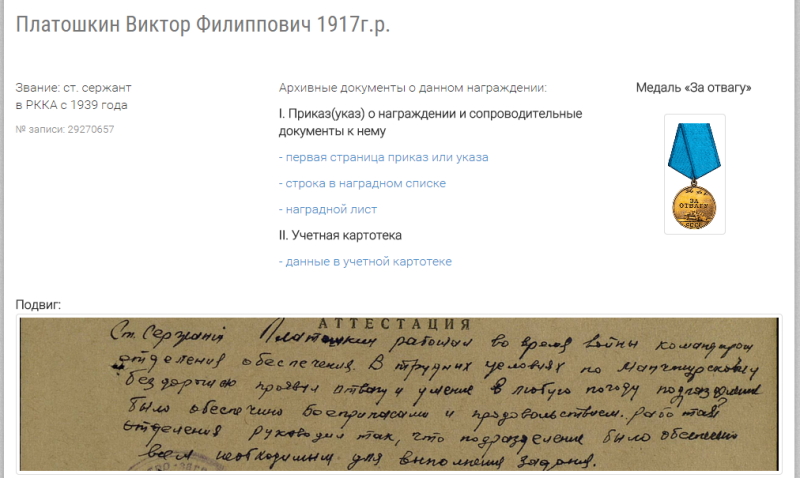 Платошкин Виктор Филиппович 1917г.р.
Звание: ст. сержант
в РККА с 1939 года
№ записи: 29270657
Архивные документы о данном награждении:
I. Приказ(указ) о награждении и сопроводительные
документы к нему
- первая страница приказ или указа
- строка в наградном списке
- наградной лист
II. Учетная картотека
- данные в учетной картотеке
Медаль «За отвагу»
ЗА
ОТВАГУ
СССР
Подвиг:
АТТЕСТАЦИЯ
Ст. Сержант Платошкин работал во время войны командиром
отделения обеспечения. В трудных условиях по Манчжурскому
бездорожью проявил отвагу и умение в любую погоду подразделение
было обеспечено боеприпасами и продовольствием. Работой
отделения руководил так, что подразделение было обеспечено
всем необходимым для выполнения задания.